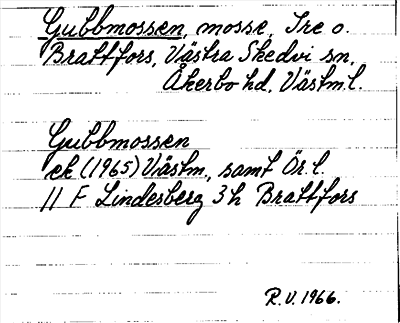 Gubbmossen, mosse, Tre o.
Brattfors, Västra Skedvi sn,
Åkerbo hd, Västm.l.
Gubbmossen
ek (1965) Västm., samt Ör. l.
11 F Lindesberg 3h Brattfors
R.V. 1966.